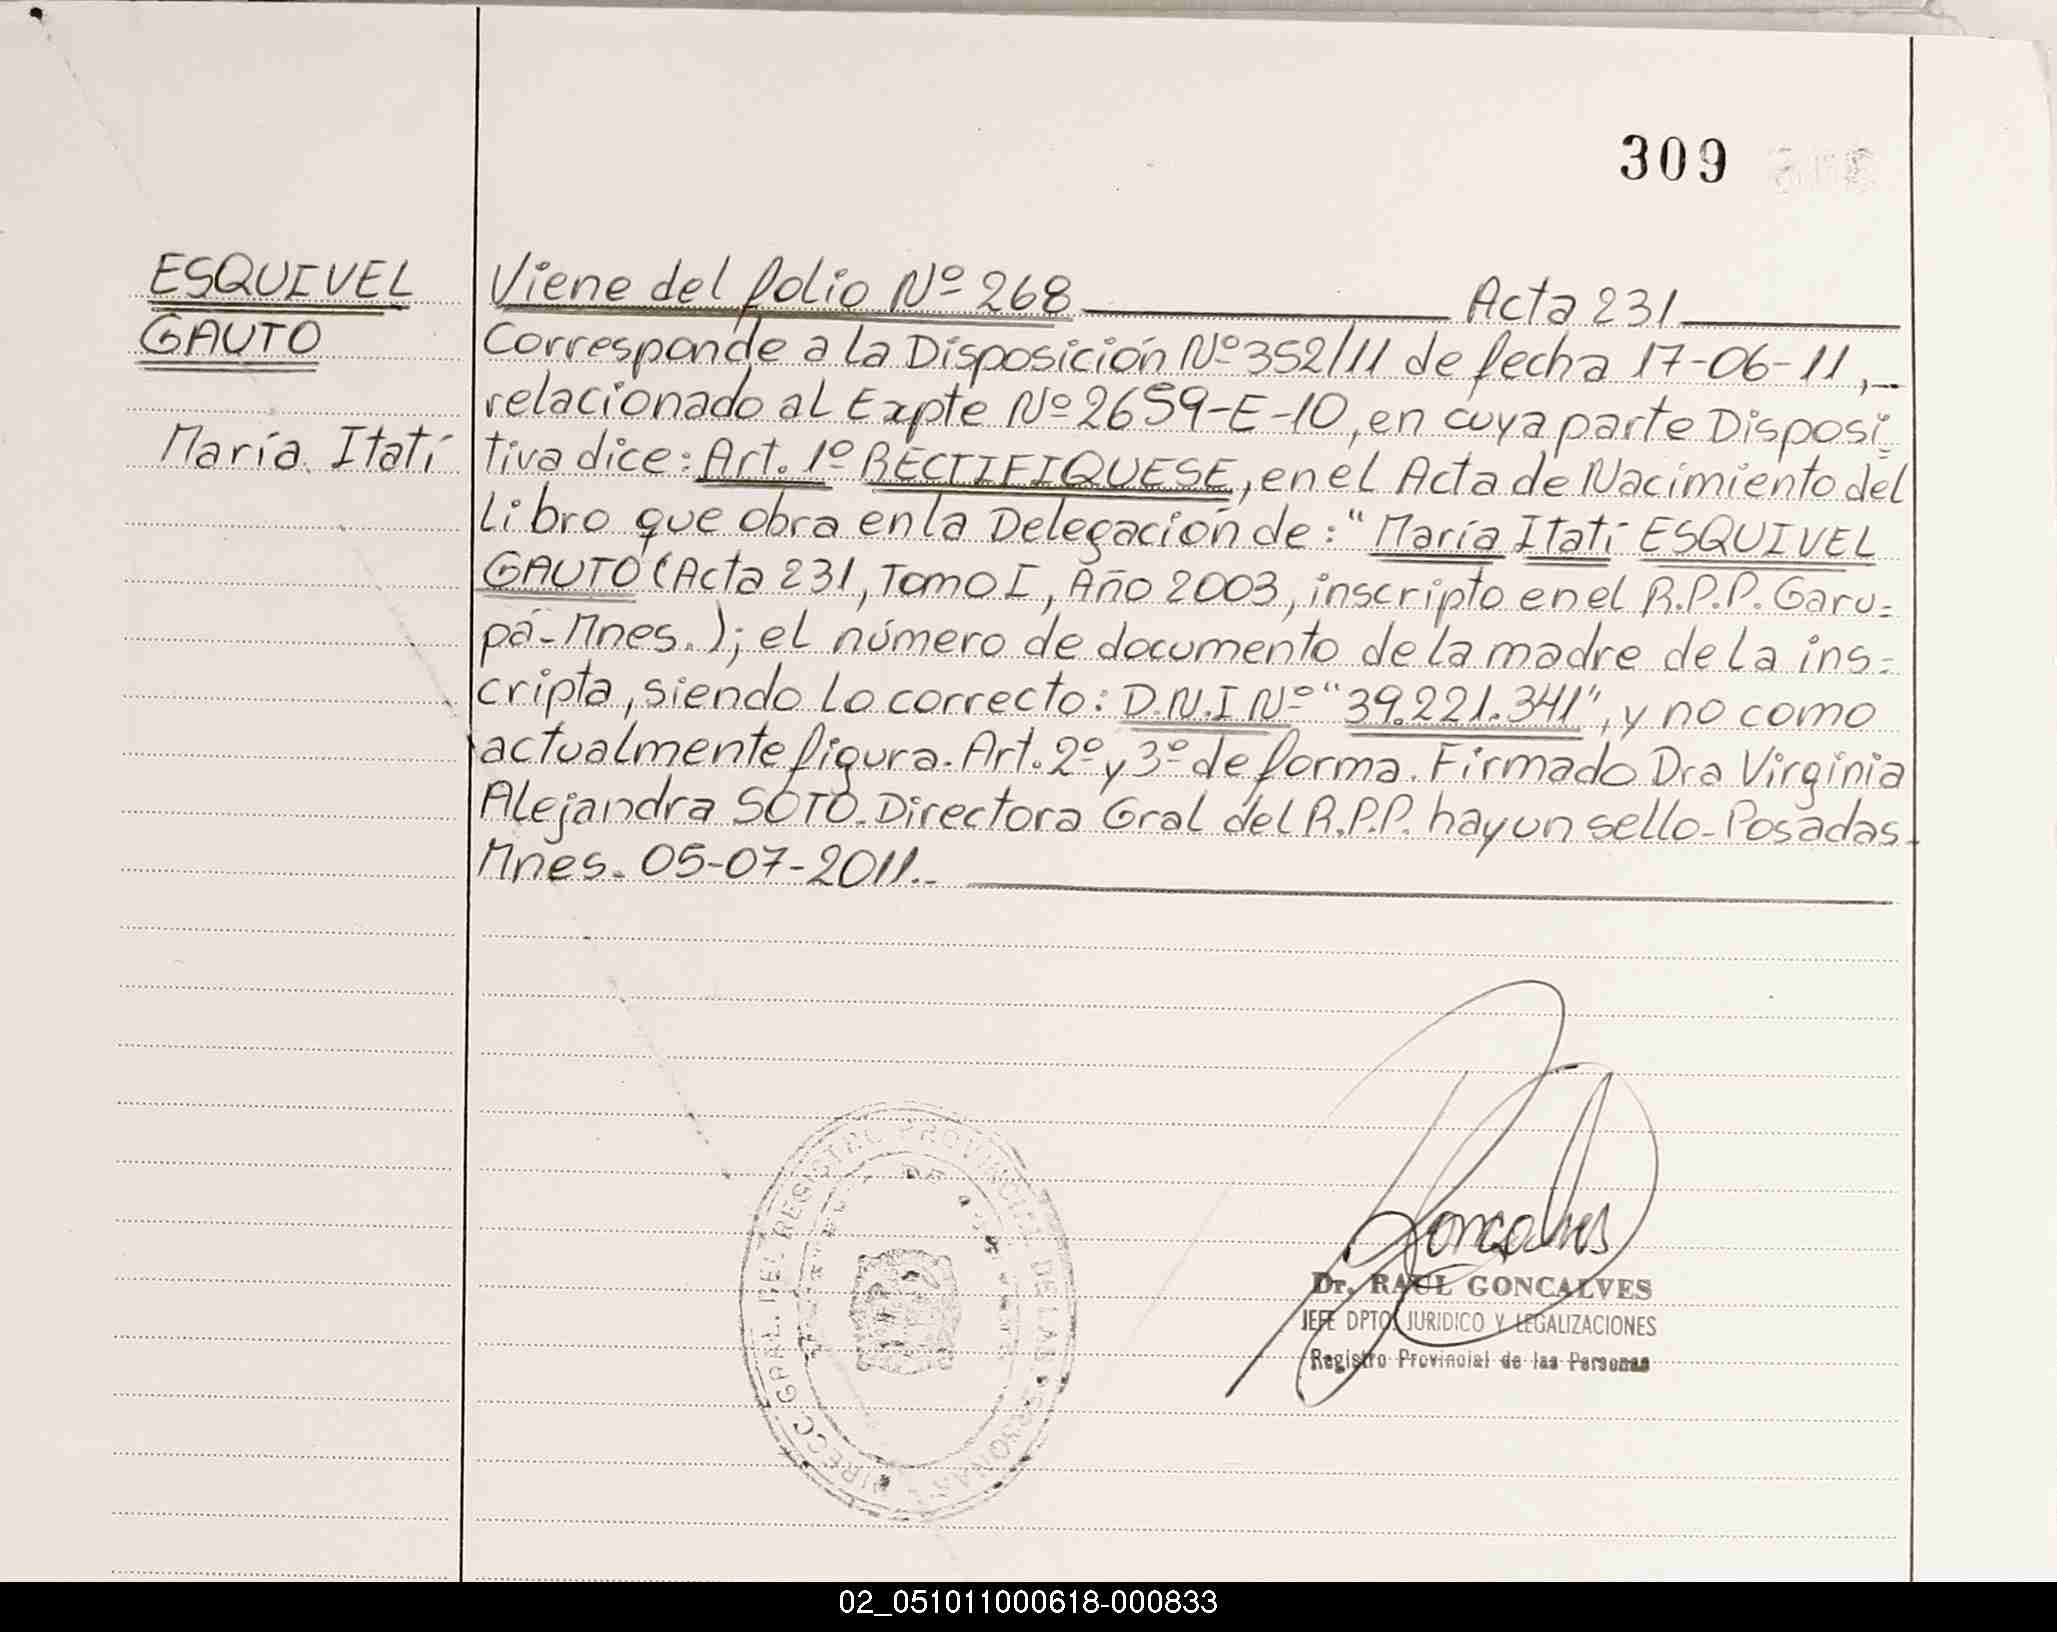 309
ESQUIVEL
GAUTO
María Itatí
Viene del folio Nº 268 Acta 231
Corresponde a la Disposición Nº 352/11 de fecha 17-06-11,-
relacionado al Expte Nº 2659-E-10, en cuya parte Disposi=
tiva dice: Art. 1º RECTIFIQUESE, en el Acta de Nacimiento del
Libro que obra en la Delegación de: "María Itatí ESQUIVEL
GAUTO (Acta 231, Tomo I, Año 2003, inscripto en el R.P.P. Garu=
pá-Mnes.); el número de documento de la madre de la ins=
cripta, siendo lo correcto: D.N.I Nº "39.221.341", y no como
actualmente figura. Art. 2º y 3º de forma. Firmado Dra Virginia
Alejandra SOTO. Directora Gral del R.P.P. hay un sello-Posadas-
Mnes. 05-07-2011.-
DIRECC. GRAL. DEL REGISTRO PROVINCIAL DE LAS PERSONAS
Goncalves
Dr. RAUL GONCALVES
JEFE DPTO. JURIDICO Y LEGALIZACIONES
Registro Provincial de las Personas
02_051011000618-000833